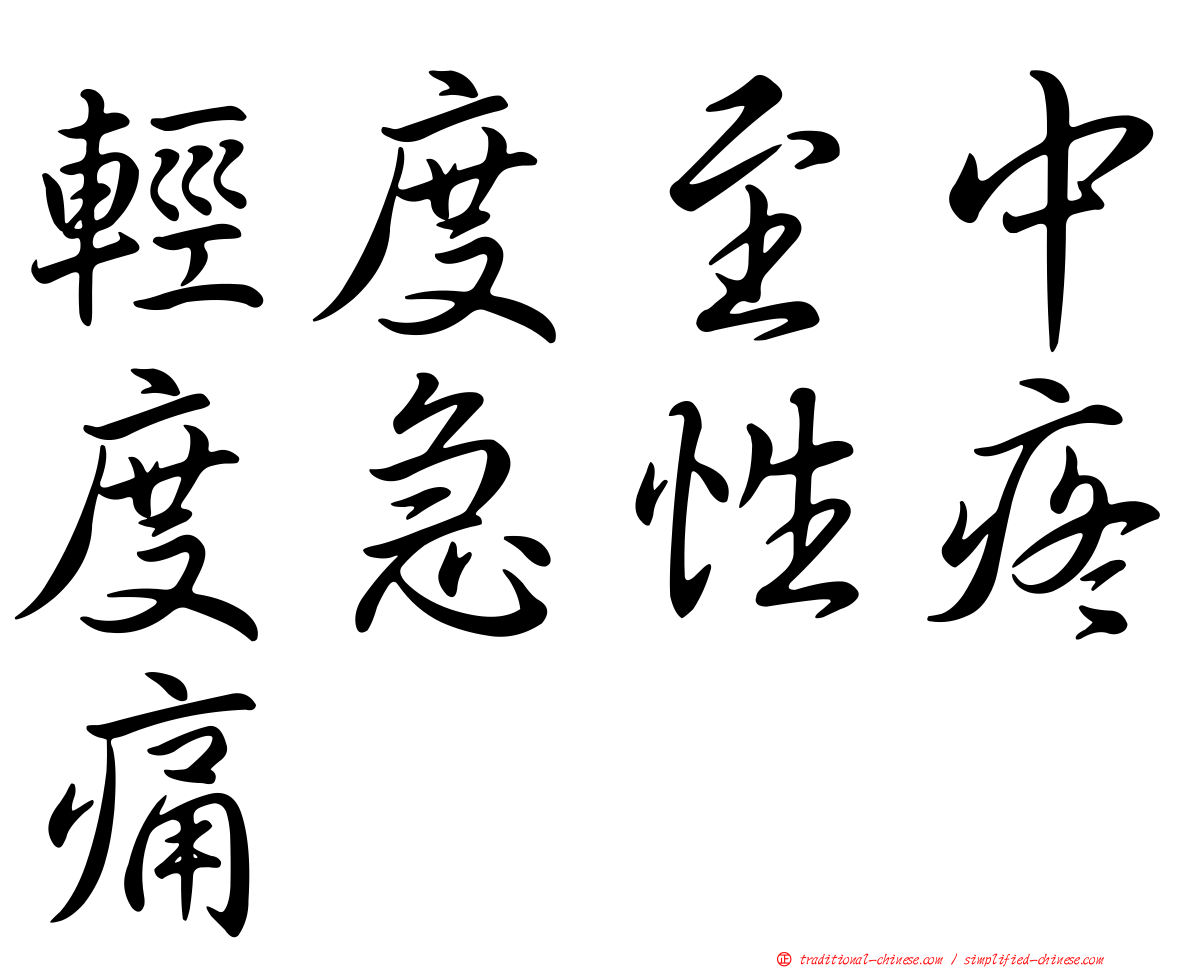 輕度至中
度急性疼
痛
正 traditional-chinese.com / simplified-chinese.com